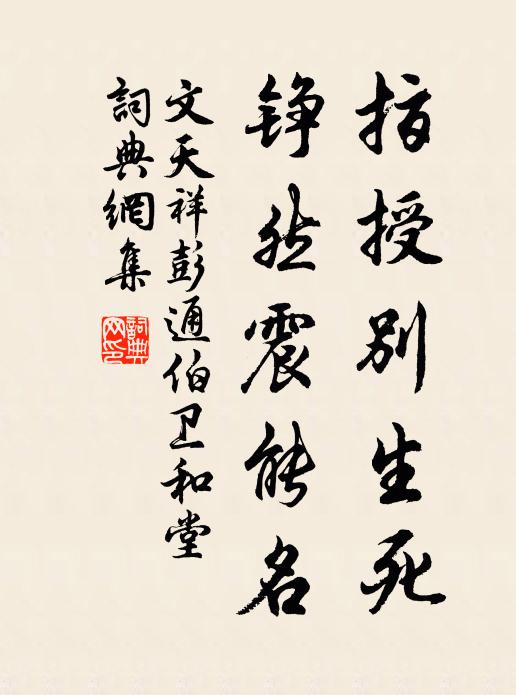 指授別生死
铮然震能名
文天祥彭通伯卫和堂
詞典網集
詞典网印